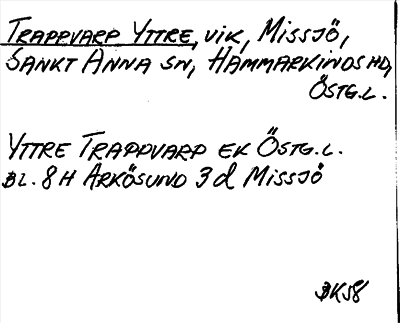 TRAPPVARP YTTRE, VIK, MISSJÖ,
SANKT ANNA SN, HAMMARKINDS HD,
ÖSTG.L.
YTTRE TRAPPVARP EK ÖSTG.L.
BL. 8H ARKÖSUND 3d MISSJÖ
BK58